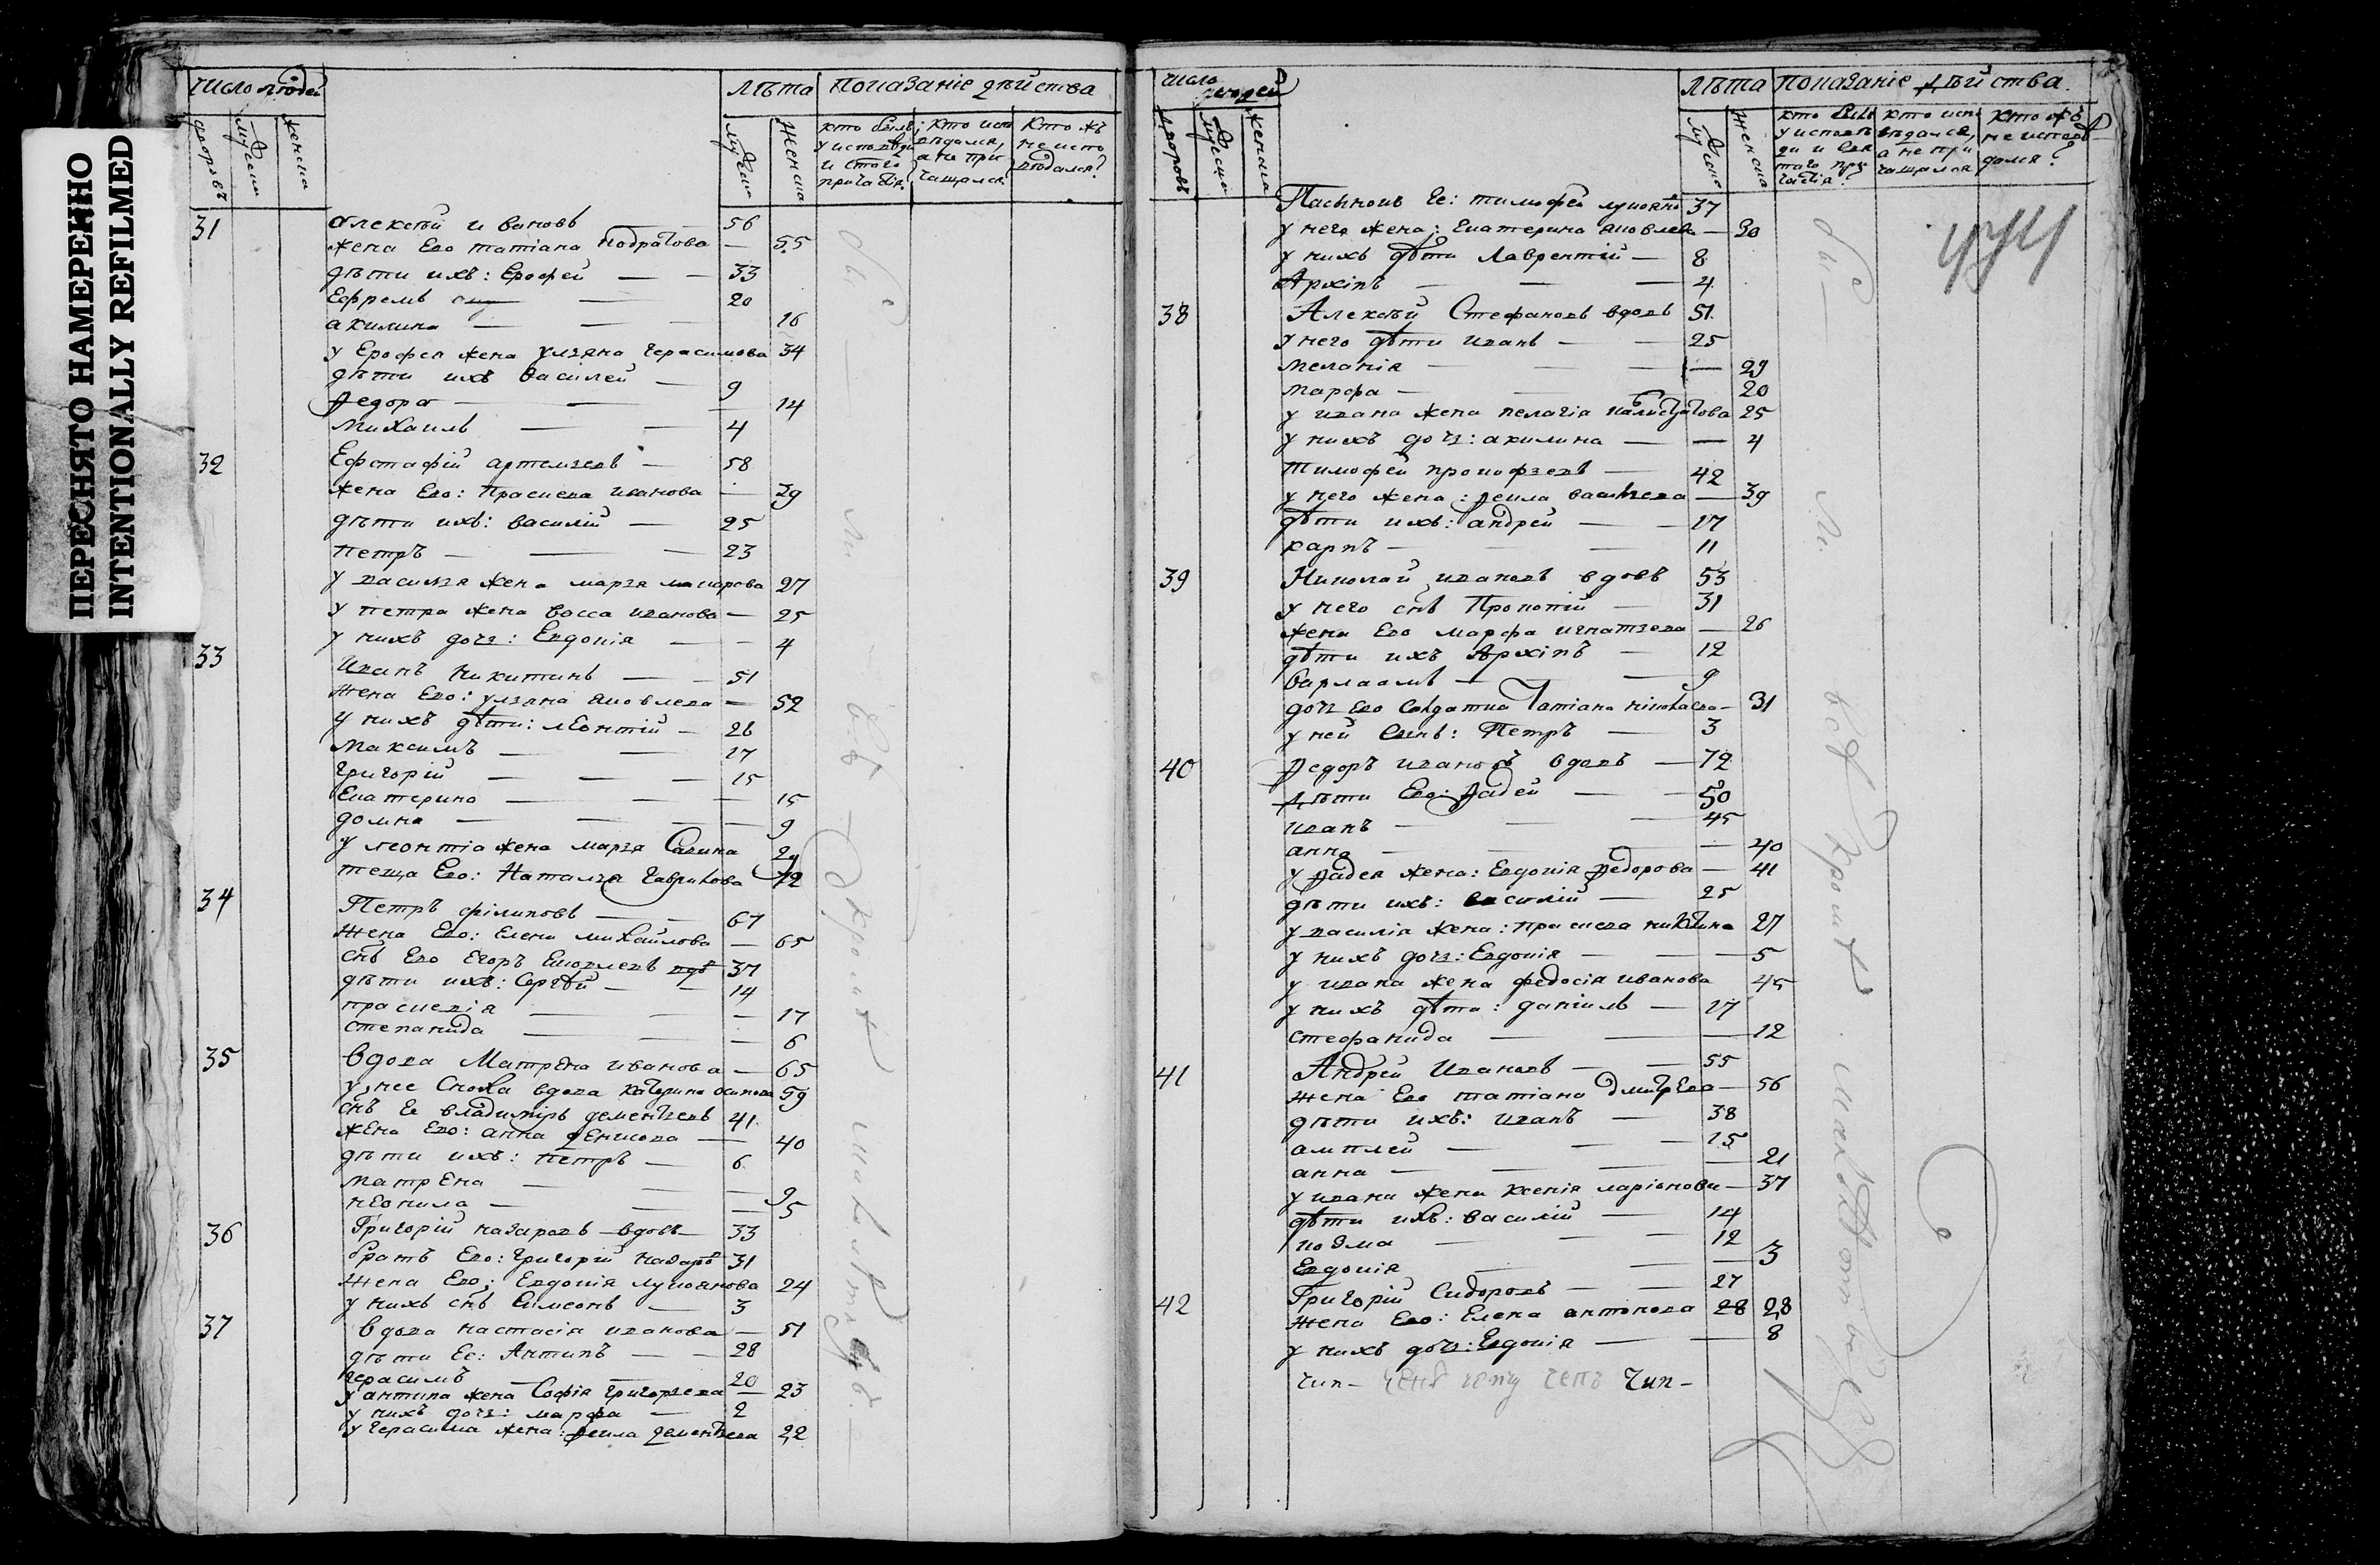 ПЕРЕСНЯТО НАМЕРЕННО
INTENTIONALLY REFILMED
число людей
лѣта
показаніе дѣйства
дворовъ
мужеска
женска
мужеска
женска
кто былъ у исповѣди и с̃таго причастія?
кто исповѣдался, а не причащался
кто жъ не исповѣдался?
31 Алексѣй Ивановъ 56
жена Ево татіана Кодратова — 55
дѣти ихъ: Ерофей — — 33
Ефремъ — 20
акилина — — 16
у Ерофея жена улзяна герасимова 34
дѣти ихъ василей — 9
Ѳедора — — — 14
Михаилъ — — 4
32 Ефстафій артемзевъ — 58
жена Ево: Праскева иванова — 39
дѣти ихъ: василій — 25
петръ — — — 23
у василзя жена марзя макарова 27
у петра жена васса иванова — 25
у нихъ дочз: Евдокія — — 4
33 Иванъ никитинъ — — 51
жена Ево: улзяна яковлева — 52
у нихъ дѣти: леонтій — 26
Максимъ — — 17
григорій — — — 15
Екатерина — — — 15
домна — — — — 9
у леонтіа жена марзя Савина 29
теща Ево: Наталзя гаврилова 72
34 Петръ филиповъ — — 67
жена Ево: Елена михайлова — 65
снъ Ево Егоръ вдв 37
дѣти ихъ: Сергѣй — — 14
праскевія — — — 17
степанида — — — 6
35 Вдова Матрена иванова — 65
у нее Сноха вдова катерина осипова 59
снъ Ее владиміръ дементзевъ 41
жена Ево: анна денисова — 40
дѣти ихъ: петръ — 6
матрена — — — 9
неонила — — — 5
36 Григорій назаровъ — вдовъ — 33
братъ Ево: григорій назаровъ 31
жена Ево: Евдокія лукоянова 24
у нихъ снъ Симеонъ — 3
37 Вдова настасія иванова — 51
дѣти Ее: Антипъ — — 28
герасимъ — — 20
у антипа жена Софія григорзева — 23
у нихъ дочз: марфа — 2
у герасима жена: Ѳекла дементзева 22
число людей
лѣта
показаніе дѣйства
дворовъ
мужеска
женска
мужеска
женска
кто былъ у исповѣди и святаго причастія?
кто исповѣдался, а не причащался
кто жъ не исповѣдался?
Пасынокъ Ее: тимофей лукояно 37
у него жена: Екатерина яковлева — 30
у нихъ дѣти Лаврентій — 8
Архіпъ — — — 4
38 Алексѣй Стефановъ вдовъ 51
у него дѣти иванъ — — 25
меланія — — — — 29
марфа — — — 20
у ивана жена пелагія 25
у нихъ дочз: акилина — — 4
тимофей прокофзевъ — 42
у него жена: Ѳекла васизева — 39
дѣти ихъ: андрей — — 17
карпъ — — — 11
39 Николай ивановъ вдовъ 53
у него снъ Прокопій — 31
жена Ево марфа игнатзева — 26
дѣти ихъ Архіпъ — 12
варлаамъ — — 9
дочз Ево Солдатка Татіана николаева — 31
у ней Сынъ: Петръ — 3
40 Ѳедоръ ивановъ вдовъ — 72
дѣти Ево: Ѳадей — — 50
иванъ — — — 45
анна — — — — 40
у Ѳадея жена: Евдокія Ѳедорова — 41
дѣти ихъ: василій — 25
у василія жена: праскева никитина 27
у нихъ дочз: Евдокія — — 5
у ивана жена федосія иванова 45
у нихъ дѣти: даніилъ — 17
стефанида — — — 12
41 Андрей Ивановъ — — 55
жена Ево татіана Дмитрева — 56
дѣти ихъ: иванъ — 38
амплей — — — 15
анна — — — 21
у ивана жена ксенія ларіонова — 37
дѣти ихъ: василій — 14
козма — — — 12
Евдокія — — — 3
42 Григорій Сидоровъ — — 27
жена Ево: Елена антонова 28 28
у нихъ дочз: Евдокія — — 8
чип — чип —